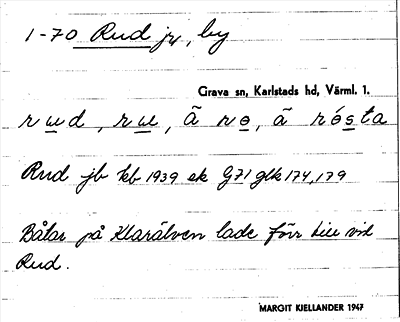 1-70 Rud jb, by
Grava sn, Karlstads hd, Värml. l.
rud, ru, å ro, å rósta
Rud jb kb 1939 ek G71 glk 174, 179
Båtar på Klarälven lade förr till vid
Rud.
MARGIT KJELLANDER 1947